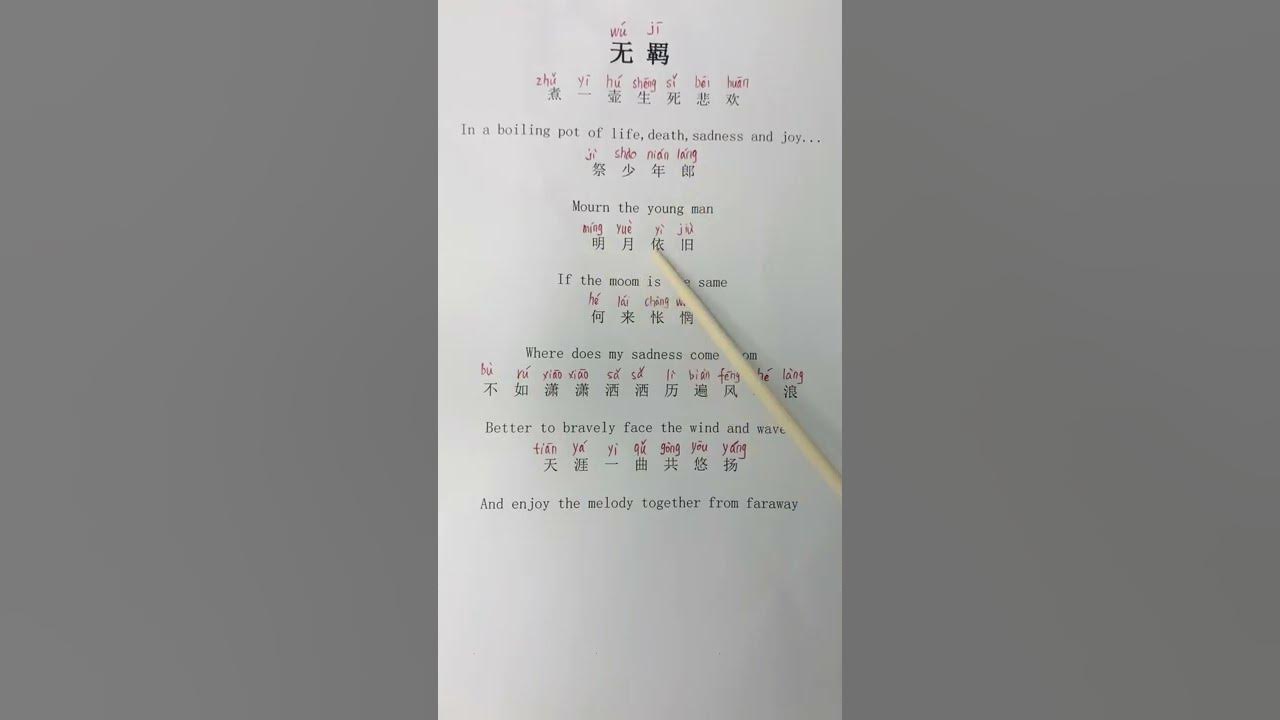 wú jī
无羁
zhǔ yī hú shēng sǐ bēi huān
煮一壶生死悲欢
In a boiling pot of life,death,sadness and joy...
jì shào nián láng
祭少年郎
Mourn the young man
míng yuè yì jiù
明月依旧
If the moom is same
hé lái chàng
何来怅惘
Where does my sadness come
bù rú xiāo xiāo sǎ sǎ lì biàn fēng hé làng
不如潇潇洒洒历遍风浪
Better to bravely face the wind and wave
tiān yá yì qǔ gòng yōu yáng
天涯一曲共悠扬
And enjoy the melody together from faraway